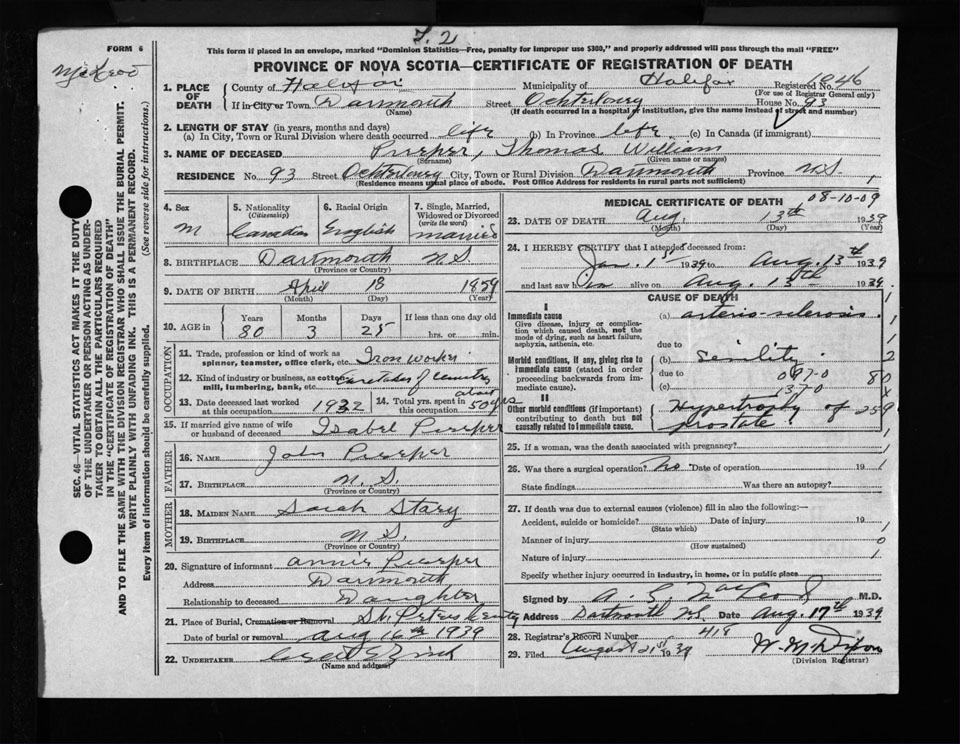 F. 2
FORM 6
This form if placed in an envelope, marked "Dominion Statistics—Free, penalty for improper use $300," and properly addressed will pass through the mail "FREE"
McLeod
PROVINCE OF NOVA SCOTIA—CERTIFICATE OF REGISTRATION OF DEATH
1. PLACE OF DEATH
County of Halifax Municipality of Halifax Registered No. 1846
(For use of Registrar General only)
If in City or Town Dartmouth Street Ochterloney House No. 93
(Name) (If death occurred in a hospital or institution, give the name instead of street and number)
2. LENGTH OF STAY (in years, months and days)
(a) In City, Town or Rural Division where death occurred life (b) In Province life (c) In Canada (if immigrant)
3. NAME OF DECEASED Pierper, Thomas William
(Surname) (Given name or names)
RESIDENCE No. 93 Street Ochterloney City, Town or Rural Division Dartmouth Province N.S. 1
(Residence means usual place of abode. Post Office Address for residents in rural parts not sufficient)
4. Sex
M
5. Nationality (Citizenship)
Canadian
6. Racial Origin
English
7. Single, Married, Widowed or Divorced (write the word)
married
8. BIRTHPLACE Dartmouth N.S.
(Province or Country)
9. DATE OF BIRTH April 18 1859
(Month) (Day) (Year)
10. AGE in
Years Months Days If less than one day
80 3 25 hrs. or min.
OCCUPATION
11. Trade, profession or kind of work as spinner, teamster, office clerk, etc. Iron worker
12. Kind of industry or business, as cotton mill, lumbering, bank, etc. Caretaker of Cemetery
13. Date deceased last worked at this occupation 1932
14. Total yrs. spent in this occupation about 50 yrs
15. If married give name of wife or husband of deceased Isabel Pierper
FATHER
16. NAME John Pierper
17. BIRTHPLACE N.S.
(Province or Country)
MOTHER
18. MAIDEN NAME Sarah Stary
19. BIRTHPLACE N.S.
(Province or Country)
20. Signature of informant Annie Pierper
Address Dartmouth
Relationship to deceased Daughter
21. Place of Burial, Cremation or Removal St. Peters Cemetry
Date of burial or removal Aug 16th 1939
22. UNDERTAKER
(Name and address)
MEDICAL CERTIFICATE OF DEATH
08-10-09
23. DATE OF DEATH Aug. 13th 1939
(Month) (Day) (Year)
24. I HEREBY CERTIFY that I attended deceased from:
Jan. 1st 1939 to Aug. 13th 1939
and last saw him alive on Aug. 13th 1939.
CAUSE OF DEATH
I
Immediate cause
Give disease, injury or complication which caused death, not the mode of dying, such as heart failure, asphyxia, asthenia, etc.
(a) arterio-sclerosis.
due to
Morbid conditions, if any, giving rise to immediate cause (stated in order proceeding backwards from immediate cause).
(b) Senility.
due to 097-0
(c) 137-0
II
Other morbid conditions (if important) contributing to death but not causally related to immediate cause.
Hypertrophy of prostate
1
1
1
2
80
x
259
1
25. If a woman, was the death associated with pregnancy?
26. Was there a surgical operation? No Date of operation 19 1
State findings Was there an autopsy?
27. If death was due to external causes (violence) fill in also the following:—
Accident, suicide or homicide? Date of injury 19
(State which) 1
Manner of injury 0
(How sustained)
Nature of injury 1
Specify whether injury occurred in industry, in home, or in public place
Signed by A. G. MacLeod M.D.
Address Dartmouth N.S. Date Aug. 17th 1939
28. Registrar's Record Number 418
29. Filed August 21st 1939 W. M. Dixon
(Division Registrar)
SEC. 46—VITAL STATISTICS ACT MAKES IT THE DUTY
OF THE UNDERTAKER OR PERSON ACTING AS UNDERTAKER
TO OBTAIN ALL THE PARTICULARS REQUIRED
IN THE "CERTIFICATE OF REGISTRATION OF DEATH"
AND TO FILE THE SAME WITH THE DIVISION REGISTRAR WHO SHALL ISSUE THE BURIAL PERMIT.
WRITE PLAINLY WITH UNFADING INK. THIS IS A PERMANENT RECORD.
Every item of information should be carefully supplied. (See reverse side for instructions.)